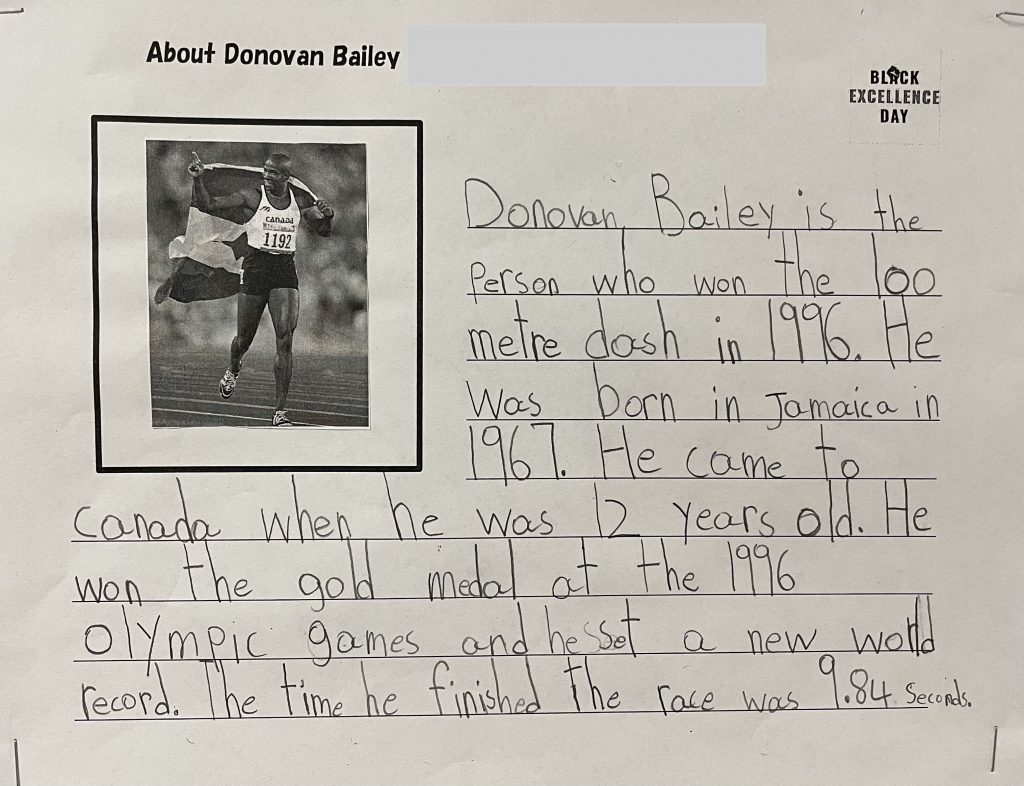 About Donovan Bailey
BLACK
EXCELLENCE
DAY
CANADA
1192
Donovan Bailey is the
person who won the 100
metre dash in 1996. He
was born in Jamaica in
1967. He came to
Canada when he was 12 years old. He
won the gold medal at the 1996
Olympic games and he sset a new world
record. The time he finished the race was 9.84 seconds.